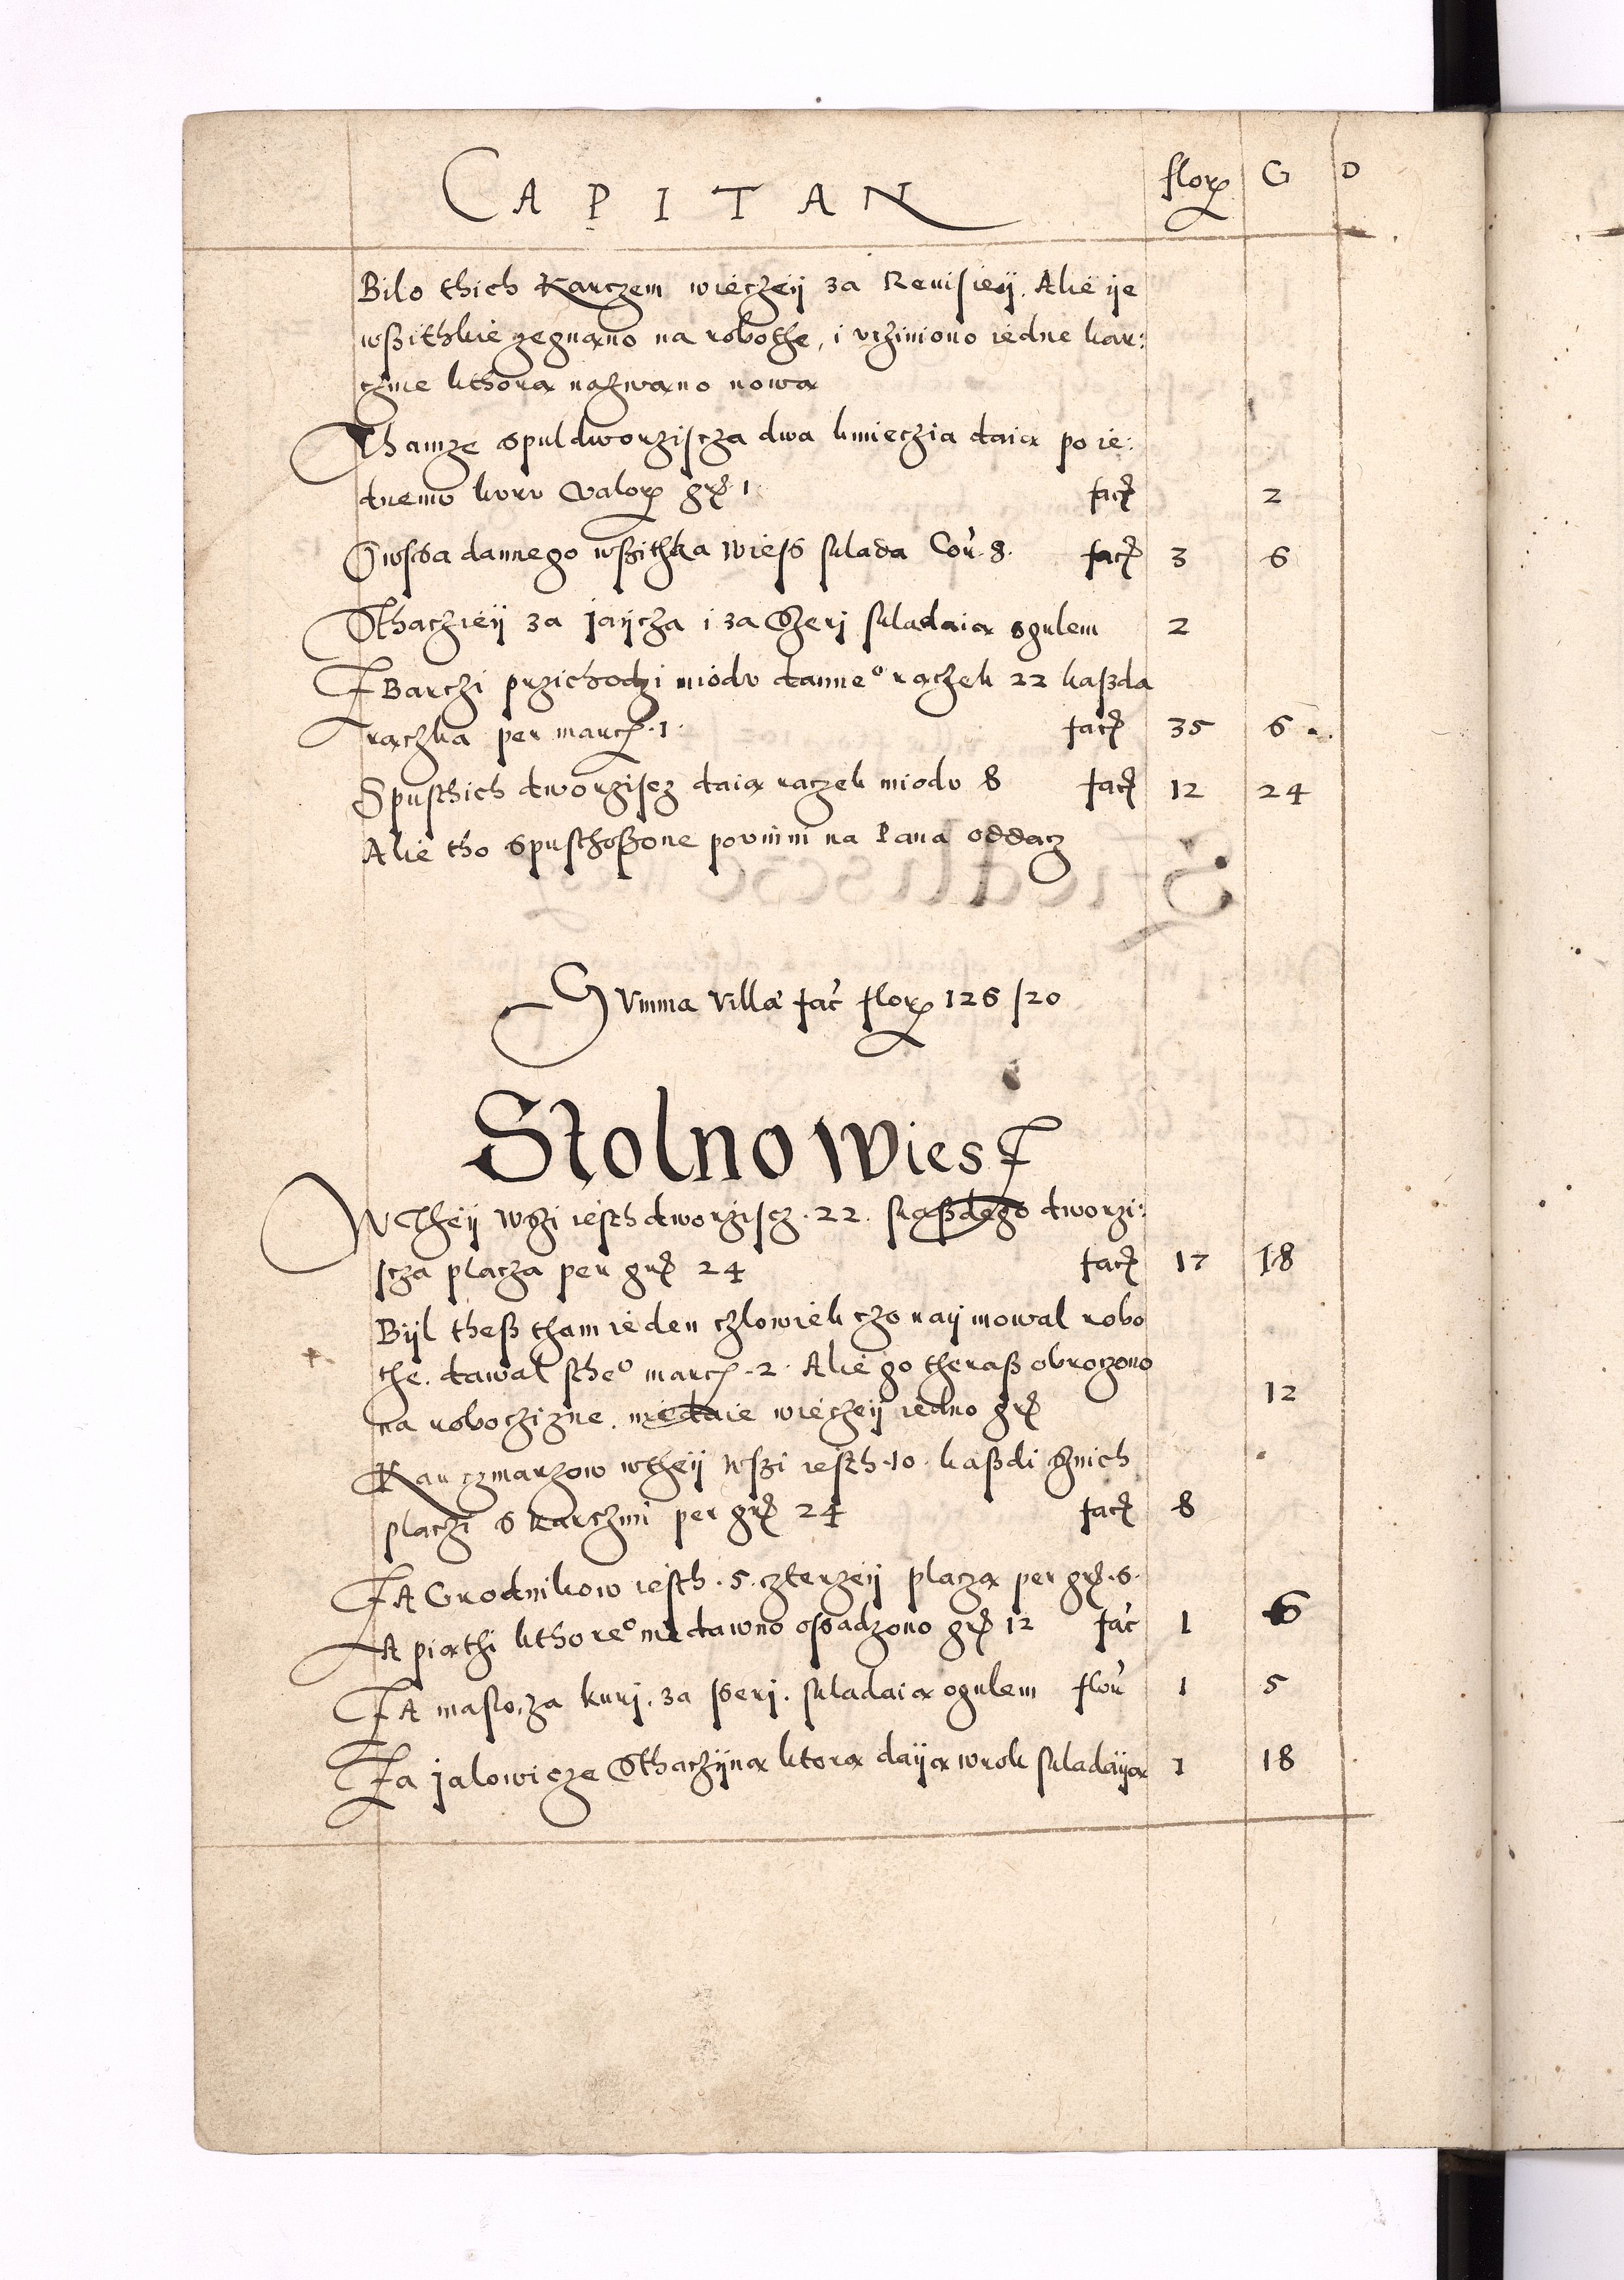 CAPITAN flor G D
Bilo thich Karczem wieczeÿ za Reuisieÿ. Alie ÿe
wßithkie zegnano na robothe, i vcziniono iedne kar:
czme kthora nazwano nowa
Thamze spuldworzÿscza dwa kmieczia daia po ie:
dnemv kurv Valor gr 1 fac 2
Owssa dannego wßithka Wiess sklada Cor. 8. fac 3 6
Sthaczieÿ za jaÿcza i za Seri skladaia ogulem 2
Z Barczi przichodzi miodv danneº raczek 22 kaßda
raczka per marc. 1. fac 35 6
Spusthich dworziscz daia raczek miodv 8 fac 12 24
Alie tho Spusthoßone powinni na Pana oddacz
Summa Villæ fac flor 126 /20
Stolno Wies
W Theÿ Wßi iesth dworzÿscz. 22. skaßdego dworzi:
scza placza per gr 24 fac 17 18
Bÿl theß tham ieden czlowiek czo naÿmowal robo
the. dawal stheº marc. 2. Alie go theraß obroczono
na roboczizne. niedaie wieczeÿ iedno gr 12
Karczmarzow wtheÿ Wßi iesth. 10. kaßdi znich
placzi s karczmi per gr 24 fac 8
ZAGrodnikow iesth. 5. czterzeÿ placza per gr. 6.
A piathi kthoreº niedawno ossadzono gr 12 fac 1 6
ZA maslo, za kurj. za sserj. skladaia ogulem flor 1 5
Za jalowicze Sthaczÿna ktora daÿa wrok skladaÿa 1 18